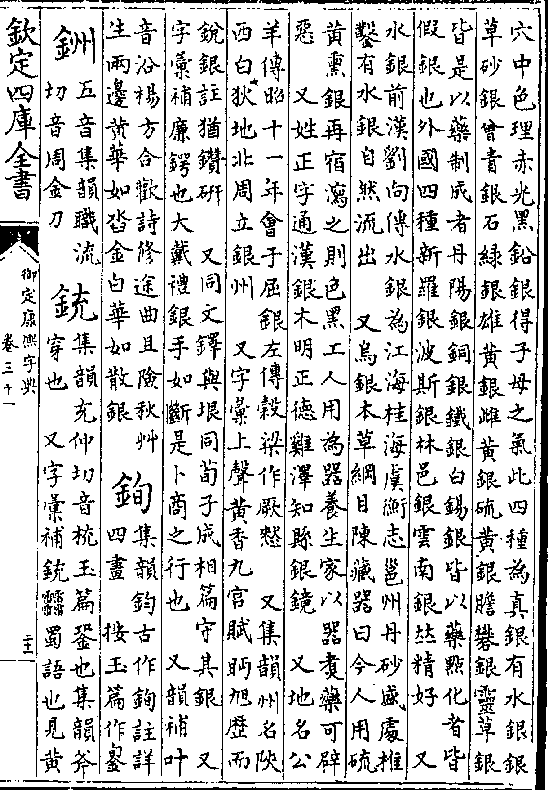 穴中色理赤光黑鉛銀得子母之氣此四種為真銀有水銀銀
草砂銀曾青銀石緑銀雄黄銀雌黄銀硫黄銀膽礬銀靈草銀
皆是以藥制成者丹陽銀銅銀鐵銀白錫銀皆以藥點化者皆
假銀也外國四種新羅銀波斯銀林邑銀雲南銀竝精好 又
水銀前漢劉向傳水銀為江海桂海虞衡志邕州丹砂盛處椎
鑿有水銀自然流出 又烏銀本草綱目陳藏器曰今人用硫
黄熏銀再宿瀉之則色黑工人用為器養生家以器煑藥可辟
惡 又姓正字通漢銀木明正德雞澤知縣銀鏡 又地名公
羊傳昭十一年會于屈銀左傳穀梁作厥憖 又集韻州名陜
西白狄地北周立銀州 又字彙上聲黄香九宫賦眄旭歷而
銳銀註猶鑽研 又同文鐸與垠同荀子成相篇守其銀 又
字彙補廉鍔也大戴禮銀手如斷是卜商之行也 又韻補叶
音沿楊方合歡詩修途曲且險秋艸
生兩邊黄華如沓金白華如散銀
銁
集韻鈞古作銁註詳
四畫 按玉篇作
銂
五音集韻職流
切音周金刀
銃
集韻充仲切音 玉篇銎也集韻斧
穿也 又字彙補銃 蜀語也見黄
欽定四庫全書
御定康熙字典
卷三十一
二十三